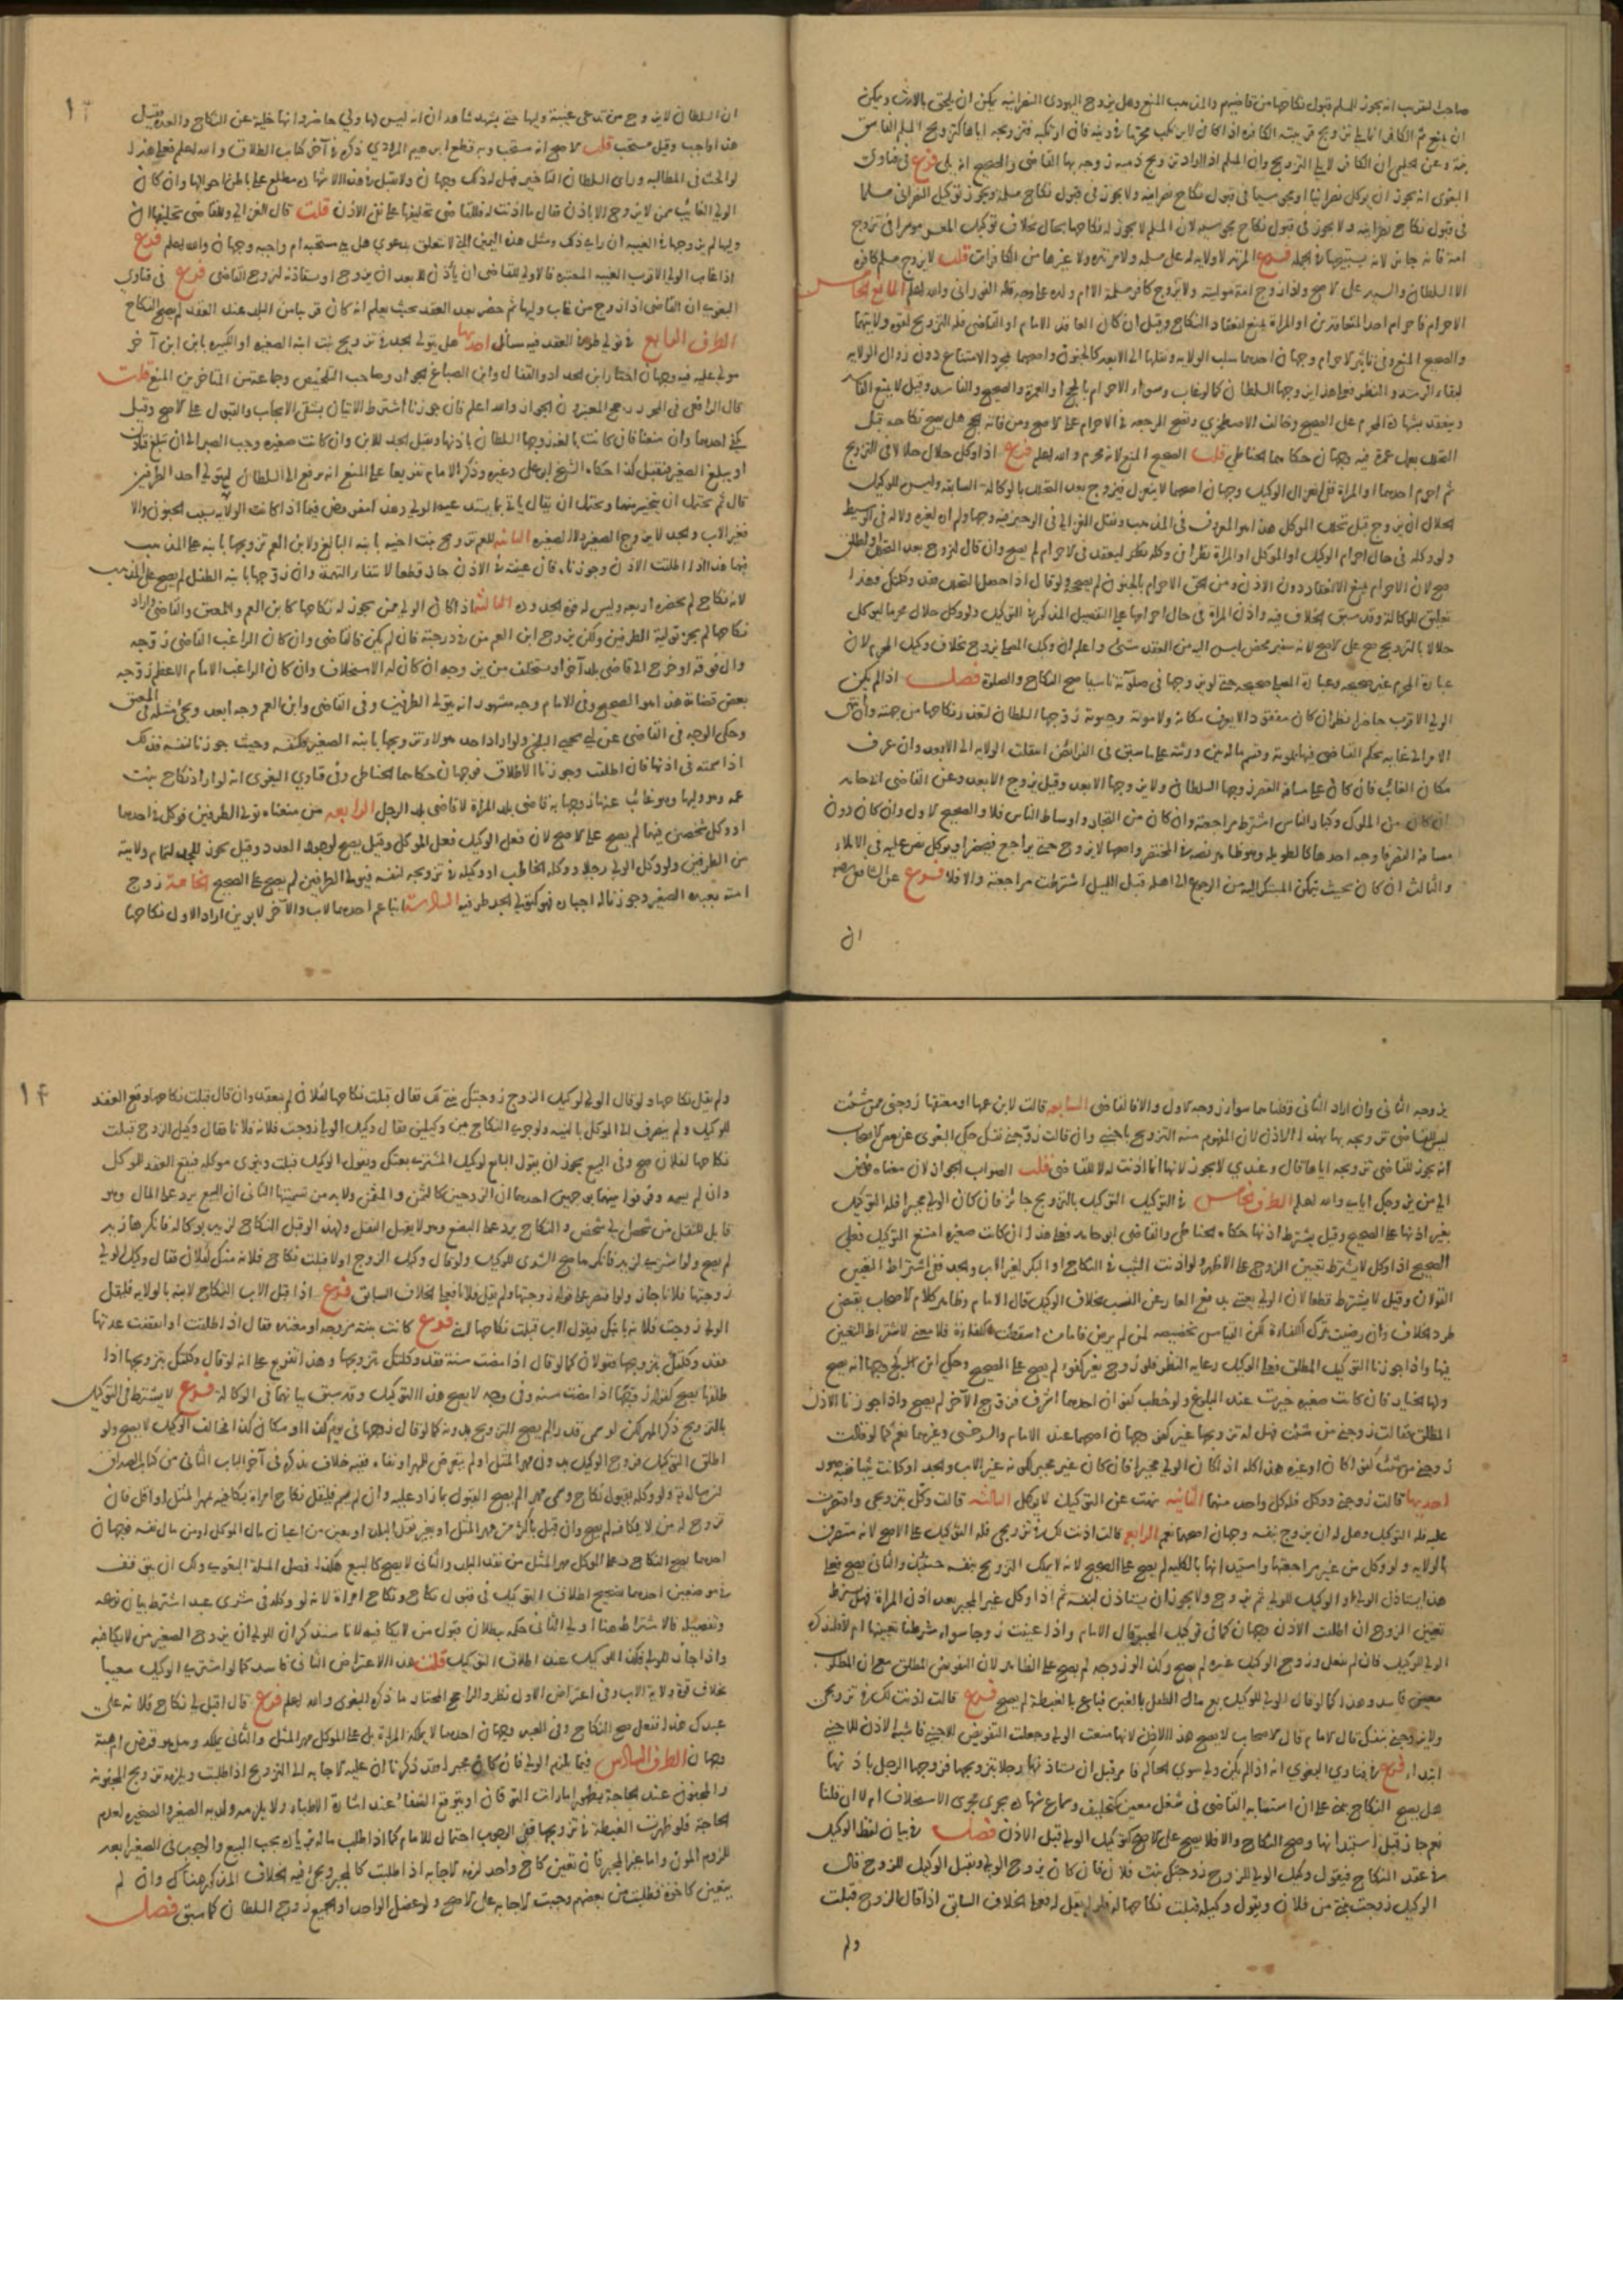 صاحب التقريب انه يجوز للمسلم قبول نكاحها من قاضيهم والمذهب المنع وهل يزوج اليهودي النصرانية يمكن ان يلحق بالارث ويمكن
ان يمنع ثم الكافر انما يلي تزويج قريبته الكافرة اذا كان لا يرتكب محرما في دينه فان ارتكبه فتزويجه اياها كتزويج المسلم الفاسق
بنته وعن الحليمي ان الكافر لا يلي التزويج وان المسلم اذا اراد تزوج ذمية زوجه بها القاضي والصحيح انه يلي فرع في فتاوى
البغوي انه يجوز ان يوكل نصرانيا او مجوسيا في قبول نكاح نصرانية ولا يجوز في قبول نكاح مسلمة ويجوز توكيل النصراني مسلما
في قبول نكاح نصرانية ولا يجوز في قبول نكاح مجوسية لان المسلم لا يجوز له نكاحها بحال بخلاف توكيل المعسر موسرا في تزوج
امة فانه جائز لانه يستبيحها في الجملة فرع المرتد لا ولاية له على مسلمة ولا مرتدة ولا غيرها من الكافرات قلت لا يزوج مسلم كافرة
الا السلطان والسيد على الاصح واذا زوج امة موليته ولا يزوج كافر مسلمة الا ام ولده على وجه قاله الفوراني والله اعلم المانع الخامس
الاحرام فاحرام احد المتعاقدين او المراة يمنع انعقاد النكاح وقيل ان كان العاقد الامام او القاضي فله التزويج لقوة ولايتهما
والصحيح المنع وفي تاثير الاحرام وجهان احدهما سلب الولاية ونقلها الى الابعد كالجنون واصحهما مجرد الامتناع دون زوال الولاية
لبقاء الرشد والنظر فعلى هذا يزوجها السلطان كما لو غاب وسواء الاحرام بالحج او العمرة والصحيح والفاسد وقيل لا يمنع الفاسد
وينعقد بشهادة المحرم على الصحيح وخالف الاصطخري وتصح الرجعة في الاحرام على الاصح ومن فاته الحج هل يصح نكاحه قبل
التحلل بعمل عمرة فيه وجهان حكاهما الحناطي قلت الصحيح المنع لانه محرم والله اعلم فرع اذا وكل حلال حلالا في التزويج
ثم احرم احدهما او المراة ففي انعزال الوكيل وجهان اصحهما لا ينعزل فيزوج بعد التحلل بالوكالة السابقة وليس للوكيل
الحلال ان يزوج قبل تحلل الموكل هذا هو المعروف في المذهب ونقل الغزالي في الوجيز فيه وجها ولم اره لغيره ولا له في الوسيط
ولو وكله في حال احرام الوكيل او الموكل او المراة نظر ان وكله ليعقد في الاحرام لم يصح وان قال لتزوج بعد التحلل او اطلق
صح لان الاحرام يمنع الانعقاد دون الاذن ومن الحق الاحرام بالجنون لم يصححه ولو قال اذا حصل التحلل فقد وكلتك فهذا
تعليق للوكالة وقد سبق الخلاف فيه واذن المراة في حال احرامها على التفصيل المذكور في التوكيل ولو وكل حلال محرما ليوكل
حلالا بالتزويج صح على الاصح لانه سفير محض ليس اليه من العقد شيء واعلم ان وكيل المصلي يزوج بخلاف وكيل المحرم لان
عبارة المحرم غير صحيحة وعبارة المصلي صحيحة حتى لو زوجها في صلاته ناسيا صح النكاح والصلاة فصل اذا لم يكن
الولي الاقرب حاضرا نظر ان كان مفقودا لا يعرف مكانه ولا موته وحيوته زوجها السلطان لتعذر نكاحها من جهته وان انتهى
الامر الى غاية يحكم القاضي فيها بموته وقسم ماله بين ورثته على ما سبق في الفرائض انتقلت الولاية الى الابعد وان عرف
مكان الغائب فان كان على مسافة القصر زوجها السلطان ولا يزوجها الابعد وقيل يزوج الابعد وعن القاضي ابي حامد
ان كان من الملوك وكبار الناس اشترط مراجعته وان كان من التجار واوساط الناس فلا والصحيح الاول وان كان دون
مسافة القصر فاوجه احدها كالطويلة وهو ظاهر نصه في المختصر واصحها لا يزوج حتى يراجع فيحضر او يوكل نص عليه في الاملاء
والثالث ان كان بحيث يتمكن المبتكر اليه من الرجوع الى اهله قبل الليل اشترطت مراجعته والا فلا فرع عن الشافعي رضه
ان
ان السلطان لا يزوج من تدعي غيبة وليها حتى يشهد شاهدان انه ليس لها ولي حاضر وانها خلية عن النكاح والعدة فقيل
هذا واجب وقيل مستحب قلت الاصح انه مستحب وبه قطع ابراهيم المروذي ذكره في آخر كتاب الطلاق والله اعلم فعلى هذا
لو الحت في المطالبة وراى السلطان التاخير فهل له ذلك وجهان ولا يقبل في هذا الا شهادة مطلع على باطن احوالها وان كان
الولي الغائب ممن لا يزوج الا باذن فقال ما اذنت له فللقاضي تحليفها على نفي الاذن قلت قال الغزالي وللقاضي تحليفها ان
وليها لم يزوجها في الغيبة ان راى ذلك ومثل هذه اليمين التي لا تتعلق بدعوى هل هي مستحبة ام واجبة وجهان والله اعلم فرع
اذا غاب الولي الاقرب الغيبة المعتبرة فالاولى للقاضي ان ياذن للابعد ان يزوج او يستاذنه ليزوج القاضي فرع في فتاوى
البغوي ان القاضي اذا زوج من غاب وليها ثم حضر بعد العقد بحيث يعلم انه كان قريبا من البلد عند العقد لم يصح النكاح
الطرف الرابع في تولي طرفي العقد فيه مسائل احديها هل يتولى الجد في تزويج بنت ابنه الصغيرة او الكبيرة بابن ابن آخر
مولى عليه فيه وجهان اختار ابن الحداد والقفال وابن الصباغ الجواز وصاحب التلخيص وجماعة من المتاخرين المنع قلت
قال الرافعي في المحرر رجح المعتبرون الجواز والله اعلم فان جوزنا اشترط الاتيان بشقي الايجاب والقبول على الاصح وقيل
يكفي احدهما وان منعنا فان كانت بالغة زوجها السلطان باذنها ويقبل الجد للابن وان كانت صغيرة وجب الصبر الى ان تبلغ فتاذن
او يبلغ الصغير فيقبل كذا حكاه الشيخ ابو علي وغيره وذكر الامام تفريعا على المنع انه يرفع الى السلطان ليتولى احد الطرفين
قال ثم يحتمل ان يتخير بينهما ويحتمل ان يقال ياتي بما يستدعيه الولي وهذا مفروض فيما اذا كانت الولاية بسبب الجنون والا
فغير الاب والجد لا يزوج الصغير ولا الصغيرة الثانية للعم تزويج بنت اخيه بابنه البالغ ولابن العم تزويجها بابنه على المذهب
فيهما هذا اذا اطلقت الاذن وجوزناه فان عينته في الاذن جاز قطعا لانتفاء التهمة وان زوجها بابنه الطفل لم يصح على المذهب
لانه نكاح لم يحضره اربعة وليس له قوة الجدودة الثالثة اذا كان الولي ممن يجوز له نكاحها كابن العم والمعتق والقاضي واراد
نكاحها لم يجز تولية الطرفين ولكن يزوج ابن العم من في درجته فان لم يكن فالقاضي وان كان الراغب القاضي زوجه
والي فوقه او خرج الى قاضي بلد آخر او يستخلف من يزوجه ان كان له الاستخلاف وان كان الراغب الامام الاعظم زوجه
بعض قضاته هذا هو الصحيح وفي الامام وجه مشهور انه يتولى الطرفين وفي القاضي وابن العم وجه ابعد ويجيء مثله في المعتق
وحكي الوجه في القاضي عن ابي يحيى البلخي ولو اراد احد هؤلاء تزويجها بابنه الصغير فكنفسه وحيث جوزنا لنفسه فذلك
اذا سمته في اذنها فان اطلقت وجوزنا الاطلاق فوجهان حكاهما الحناطي وفي فتاوى البغوي انه لو اراد نكاح بنت
عمه وهو وليها وهو غائب عنها زوجها به قاضي بلد المراة لا قاضي بلد الرجل الرابعة من منعناه تولي الطرفين فوكل في احدهما
او وكل شخصين فيهما لم يصح على الاصح لان فعل الوكيل فعل الموكل وقيل يصح لوجود العدد وقيل يجوز للجد لتمام ولايته
من الطرفين ولو وكل الولي رجلا ووكله الخاطب او وكيله في تزويجه لنفسه فتولى الطرفين لم يصح على الصحيح الخامسة زوج
امته بعبده الصغير وجوزنا له اجباره فهو كتولي الجد طرفيه السادسة ابنا عم احدهما لاب والآخر لابوين اراد الاول نكاحها
يزوجه الثاني وان اراد الثاني وقلنا هما سواء زوجه الاول والا فالقاضي السابعة قالت لابن عمها او معتقها زوجني ممن شئت
ليس للقاضي تزويجه بها بهذا الاذن لان المفهوم منه التزويج باجنبي وان قالت زوجني نفسك حكى البغوي عن بعض الاصحاب
انه يجوز للقاضي تزويجه اياها قال وعندي لا يجوز لانها انما اذنت له لا للقاضي قلت الصواب الجواز لان معناه فوض
الى من يزوجك اياي والله اعلم الطرف الخامس في التوكيل التوكيل بالتزويج جائز فان كان الولي مجبرا فله التوكيل
بغير اذنها على الصحيح وقيل يشترط اذنها حكاه الحناطي والقاضي ابو حامد فعلى هذا ان كانت صغيرة امتنع التوكيل فعلى
الصحيح اذا وكل لا يشترط تعيين الزوج على الاظهر ولو اذنت الثيب في النكاح او البكر لغير الاب والجد ففي اشتراط التعيين
القولان وقيل لا يشترط قطعا لان الولي يعتني بدفع العار عن النسب بخلاف الوكيل قال الامام وظاهر كلام الاصحاب يقتضي
طرد الخلاف وان رضيت بترك الكفاءة لكن القياس تخصيصه لمن لم يرض فاما من اسقطت الكفاءة فلا معنى لاشتراط التعيين
فيها واذا جوزنا التوكيل المطلق فعلى الوكيل رعاية النظر فلو زوج بغير كفو لم يصح على الصحيح وحكى ابن كج وجها انه يصح
ولها الخيار فان كانت صغيرة خيرت عند البلوغ ولو خطب كفوان احدهما اشرف فزوج الآخر لم يصح واذا جوزنا الاذن
المطلق فقالت زوجني من شئت فهل له تزويجها غير كفو وجهان اصحهما عند الامام والسرخسي وغيرهما نعم كما لو قالت
زوجني من شئت كفوا كان او غيره هذا كله اذا كان الولي مجبرا فان كان غير مجبر لكونه غير الاب والجد او كانت ثيبا ففيه صور
احديها قالت زوجني ووكل فله كل واحد منهما الثانية نهت عن التوكيل لا يوكل الثالثة قالت وكل بتزويجي واقتصرت
عليه فله التوكيل وهل له ان يزوج بنفسه وجهان اصحهما نعم الرابعة قالت اذنت لك في تزويجي فله التوكيل على الاصح لانه متصرف
بالولاية ولو وكل من غير مراجعتها واستيذانها بالكلية لم يصح على الصحيح لانه لا يملك التزويج بنفسه حينئذ والثاني يصح فعلى
هذا يستاذن الولي او الوكيل للولي ثم يزوج ولا يجوز ان يستاذن لنفسه ثم اذا وكل غير المجبر بعد اذن المراة فهل يشترط
تعيين الزوج ان اطلقت الاذن وجهان كما في توكيل المجبر قال الامام واذا عينت زوجا سواء شرطنا تعيينها ام لا فليذكره
الولي للوكيل فان لم يفعل وزوج الوكيل غيره لم يصح وكذا لو زوجه لم يصح على الظاهر لان التفويض المطلق مع ان المطلوب
معين فاسد وهذا كما لو قال الولي للوكيل بع مال الطفل بالغبن فباع بالغبطة لم يصح فرع قالت اذنت لك في تزويجي
ولا تزوجني بنفسك قال الامام قال الاصحاب لا يصح هذا الاذن لانها منعت الولي وجعلت التفويض للاجنبي فاشبه الاذن للاجنبي
ابتداء فرع في فتاوى البغوي انه اذا لم يكن ولي سوى الحاكم فامر قبل ان يستاذنها رجلا بتزويجها فزوجها الرجل باذنها
هل يصح النكاح يبنى على ان استنابة القاضي في شغل معين كتحليف وسماع شهادة يجري مجرى الاستخلاف ام لا ان قلنا
نعم جاز قبل استيذانها وصح النكاح والا فلا يصح على الاصح كتوكيل الولي قبل الاذن فصل في بيان لفظ الوكيل
في عقد النكاح فيقول وكيل الولي للزوج زوجتك بنت فلان فان كان يزوج الولي ويقبل الوكيل للزوج قال
الوكيل زوجت بنتي من فلان ويقول وكيله قبلت نكاحها له فلو لم يقل له فعلى الخلاف السابق اذا قال الزوج قبلت
ولم
ولم يقل نكاحها ولو قال الولي لوكيل الزوج زوجتك بنتي فقال قبلت نكاحها لفلان لم ينعقد وان قال قبلت نكاحها وقع العقد
للوكيل ولم ينصرف الى الموكل بالنية ولو جرى النكاح بين وكيلين فقال وكيل الولي زوجت فلانة فلانا فقال وكيل الزوج قبلت
نكاحها لفلان صح وفي البيع يجوز ان يقول البايع لوكيل المشتري بعتك ويقول الوكيل قبلت وينوي موكله فيقع العقد للموكل
وان لم يسمه وفرقوا بينهما بوجهين احدهما ان الزوجين كالثمن والمثمن ولا بد من تسميتهما الثاني ان البيع يرد على المال وهو
قابل للنقل من شخص الى شخص والنكاح يرد على البضع وهو لا يقبل النقل ولهذا لو قبل النكاح لزيد بوكالة فانكرها زيد
لم يصح ولو اشترى لزيد فانكرها صح الشرى للوكيل ولو قال وكيل الزوج اولا قبلت نكاح فلانة منك لفلان فقال وكيل الولي
زوجتها فلانا جاز ولو اقتصر على قوله زوجتها ولم يقل فلانا فعلى الخلاف السابق فرع اذا قبل الاب النكاح لابنه بالولاية فليقل
الولي زوجت فلانة بابنك فيقول الاب قبلت نكاحها لابني فرع كانت بنته مزوجة او معتدة فقال اذا طلقت او انقضت عدتها
فقد وكلتك بتزويجها فقولان كما لو قال اذا مضت سنة فقد وكلتك بتزويجها وهذا تفريع على انه لو قال وكلتك بتزويجها اذا
طلقها يصح كقوله زوجها اذا مضت سنة وفي وجه لا يصح هذا التوكيل وقد سبق بيانهما في الوكالة فرع لا يشترط في التوكيل
بالتزويج ذكر المهر لكن لو سمى قدرا لم يصح التزويج بدونه كما لو قال زوجها في يوم كذا او مكان كذا فخالف الوكيل لا يصح ولو
اطلق التوكيل فزوج الوكيل بدون مهر المثل او لم يتعرض للمهر او نفاه ففيه خلاف نذكره في آخر الباب الثاني من كتاب الصداق
ولو وكله بقبول نكاح وسمى مهرا لم يصح القبول بما زاد عليه وان لم يسم فليقبل نكاح امراة يكافيه بمهر المثل او اقل فان
تزوج له من لا يكافيه لم يصح وان قبل باكثر من مهر المثل او بغير نقد البلد او بعين من اعيان مال الموكل او من مال نفسه فوجهان
احدهما يصح النكاح وعلى الموكل مهر المثل من نقد البلد والثاني لا يصح كالبيع هكذا فصل المسئلة البغوي ولك ان تتوقف
في موضعين احدهما تصحيح اطلاق التوكيل في قبول نكاح ونكاح امراة لانه لو وكله في شرى عبد اشترط بيان نوعه
وتفصيله فالاشتراط هنا اولى الثاني حكمه ببطلان قبول من لا يكافيه لانا سنذكر ان للولي ان يزوج الصغير من لا يكافيه
واذا جاز للولي فكذا الوكيل عند اطلاق التوكيل قلت هذا الاعتراض الثاني فاسد كما لو اشترى الوكيل معيبا
بخلاف قوة ولاية الاب وفي اعتراض الاول نظر والراجح المختار ما ذكره البغوي والله اعلم فرع قال اقبل لي نكاح فلانة على
عبدك هذا ففعل صح النكاح وفي العبد وجهان احدهما لا يملكه المراة بل على الموكل مهر المثل والثاني يملكه وهل هو قرض ام هبة
وجهان الطرف السادس فيما يلزم الولي فان كان مجبرا فقد ذكرنا ان عليه الاجابة الى التزويج اذا طلبت ويلزمه تزويج المجنونة
والمجنون عند الحاجة بظهور امارات التوقان او بتوقع الشفاء عند اشارة الاطباء ولا يلزمه ولد به الصغير والصغيرة لعدم
الحاجة فلو ظهرت الغبطة في تزويجها ففي الوجوب احتمال للامام كما اذا طلب ماله بزيادة يجب البيع والوجوب في الصغير ابعد
للزوم المون واما غير المجبر فان تعين كاخ واحد لزمه الاجابة اذا طلبت كالمجبر ويجيء فيه الخلاف المذكور هناك وان لم
يتعين كاخوة فطلبت من بعضهم وجبت الاجابة على الاصح ولو عضل الواحد او الجميع زوج السلطان كما سبق فصل